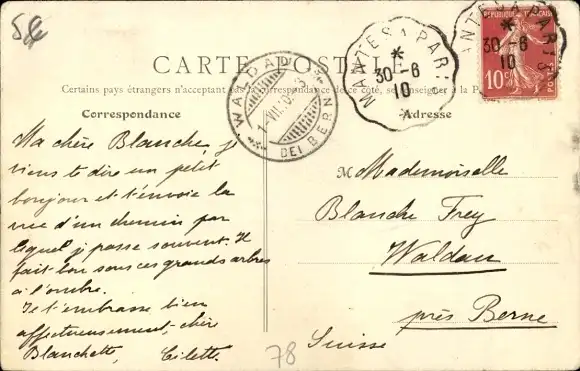 58
CARTE POSTALE
Certains pays étrangers n'acceptant pas la correspondance de ce côté, se renseigner à la Poste
Correspondance
Adresse
MANTES À PARIS
30 - 6
10
MANTES À PARIS
30 - 6
10
RÉPUBLIQUE FRANÇAISE
10c
POSTES
WALDAU
1. VII. 10
BEI BERN
Ma chère Blanche, je
viens te dire un petit
bonjour et t'envoie la
vue d'un chemin par
lequel j'passe souvent. Il
fait bon sous ces grands arbres
à l'ombre.
Je t'embrasse bien
affectueusement, chère
Blanchette,
M Mademoiselle
Blanche Frey
Waldau
près Berne
Suisse
78